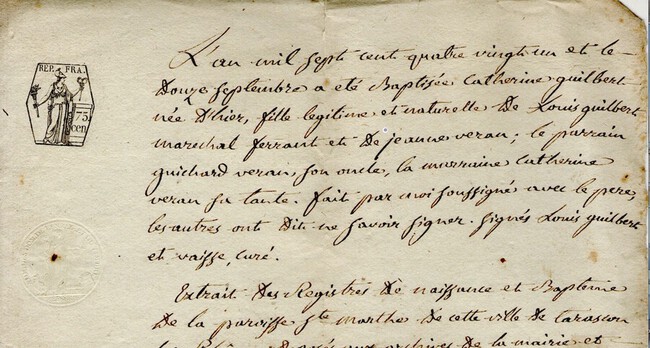 REP. FRA.
75
cen
L'an mil sept cent quatre vingt un et le
Douze septembre a eté Baptisée Catherine guilbert
née D'hier, fille legitime et naturelle De Louis guilbert
marechal ferrant et De jeanne veran; le parrain
guichard veran, son oncle, la marraine Catherine
veran sa tante. fait par moi soussigné avec le pere,
les autres ont Dit ne savoir signer. signés Louis guilbert
et vaisse, curé.
Extrait Des Registres De naissance et Bapteme
De la paroisse Ste marthe De cette ville de tarascon
aux archives de la mairie et